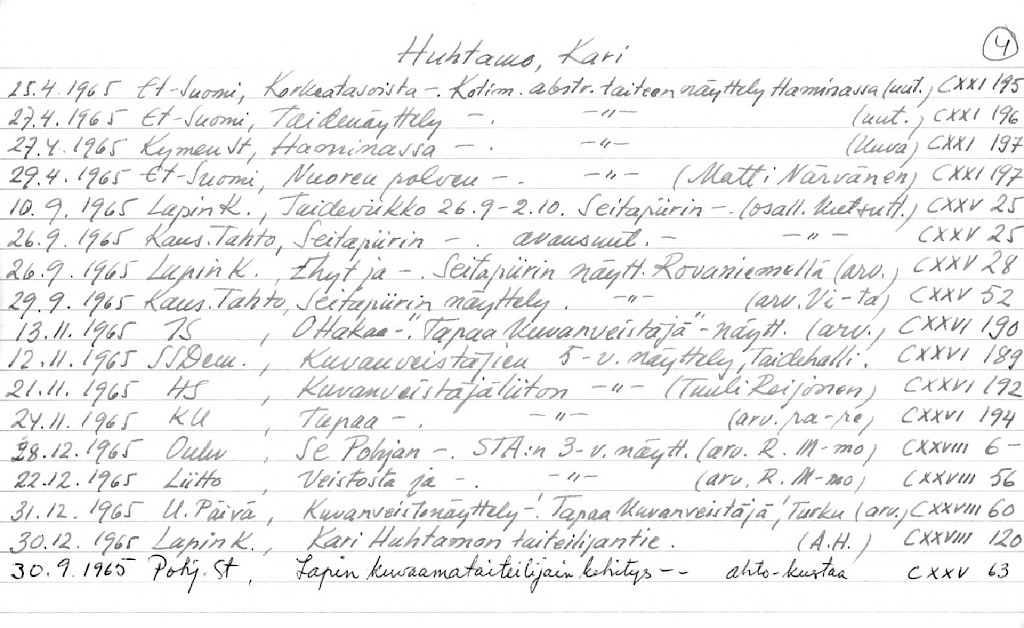 4
Huhtamo, Kari
25.4.1965 Et-Suomi, Korkeatasoista -. Kotim. abstr. taiteen näyttely Haminassa (uut.) CXXI 195
27.4.1965 Et-Suomi, Taidenäyttely -. -"- (uut.) CXXI 196
27.4.1965 Kymen St, Haminassa -. -"- (kuva) CXXI 197
29.4.1965 Et-Suomi, Nuoren polven -. -"- (Matti Närvänen) CXXI 197
10.9.1965 Lapin K., Taideviikko 26.9-2.10. Seitapiirin -. (osall. kutsutt.) CXXV 25
26.9.1965 Kans.Tahto, Seitapiirin -. avausuut. - -"- CXXV 25
26.9.1965 Lapin K., Ehyt ja -. Seitapiirin näytt. Rovaniemellä (arv.) CXXV 28
29.9.1965 Kans.Tahto, Seitapiirin näyttely. -"- (arv. Vi-ta) CXXV 52
13.11.1965 TS, Ottakaa -. "Tapaa Kuvanveistäjä"-näytt. (arv.) CXXVI 190
12.11.1965 SSDem., Kuvanveistäjien 5-v. näyttely, Taidehalli. CXXVI 189
21.11.1965 HS, Kuvanveistäjäliiton -"- (Tuuli Reijonen) CXXVI 192
24.11.1965 KU, Tapaa -. -"- (arv. ra-re) CXXVI 194
28.12.1965 Oulu, Se Pohjan -. STA:n 3-v. näytt. (arv. R. M-mo) CXXVIII 6-
22.12.1965 Liitto, Veistosta ja -. -"- (arv. R. M-mo) CXXVIII 56
31.12.1965 U. Päivä, Kuvanveistonäyttely -. 'Tapaa Kuvanveistäjä', Turku (arv.) CXXVIII 60
30.12.1965 Lapin K., Kari Huhtamon taiteilijantie. (A.H.) CXXVIII 120
30.9.1965 Pohj. St, Lapin kuvaamataiteilijain kehitys -- ahto-kustaa CXXV 63